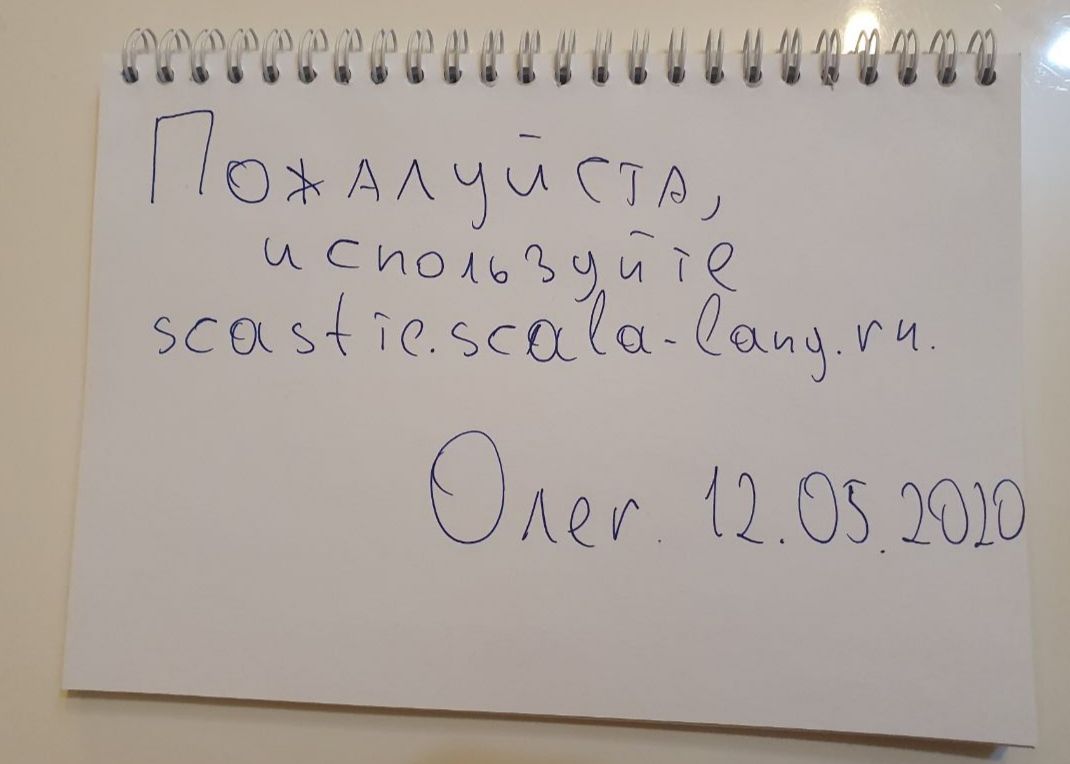 Пожалуйста,
используйте
scastie.scala-lang.ru.
Олег. 12.05.2020